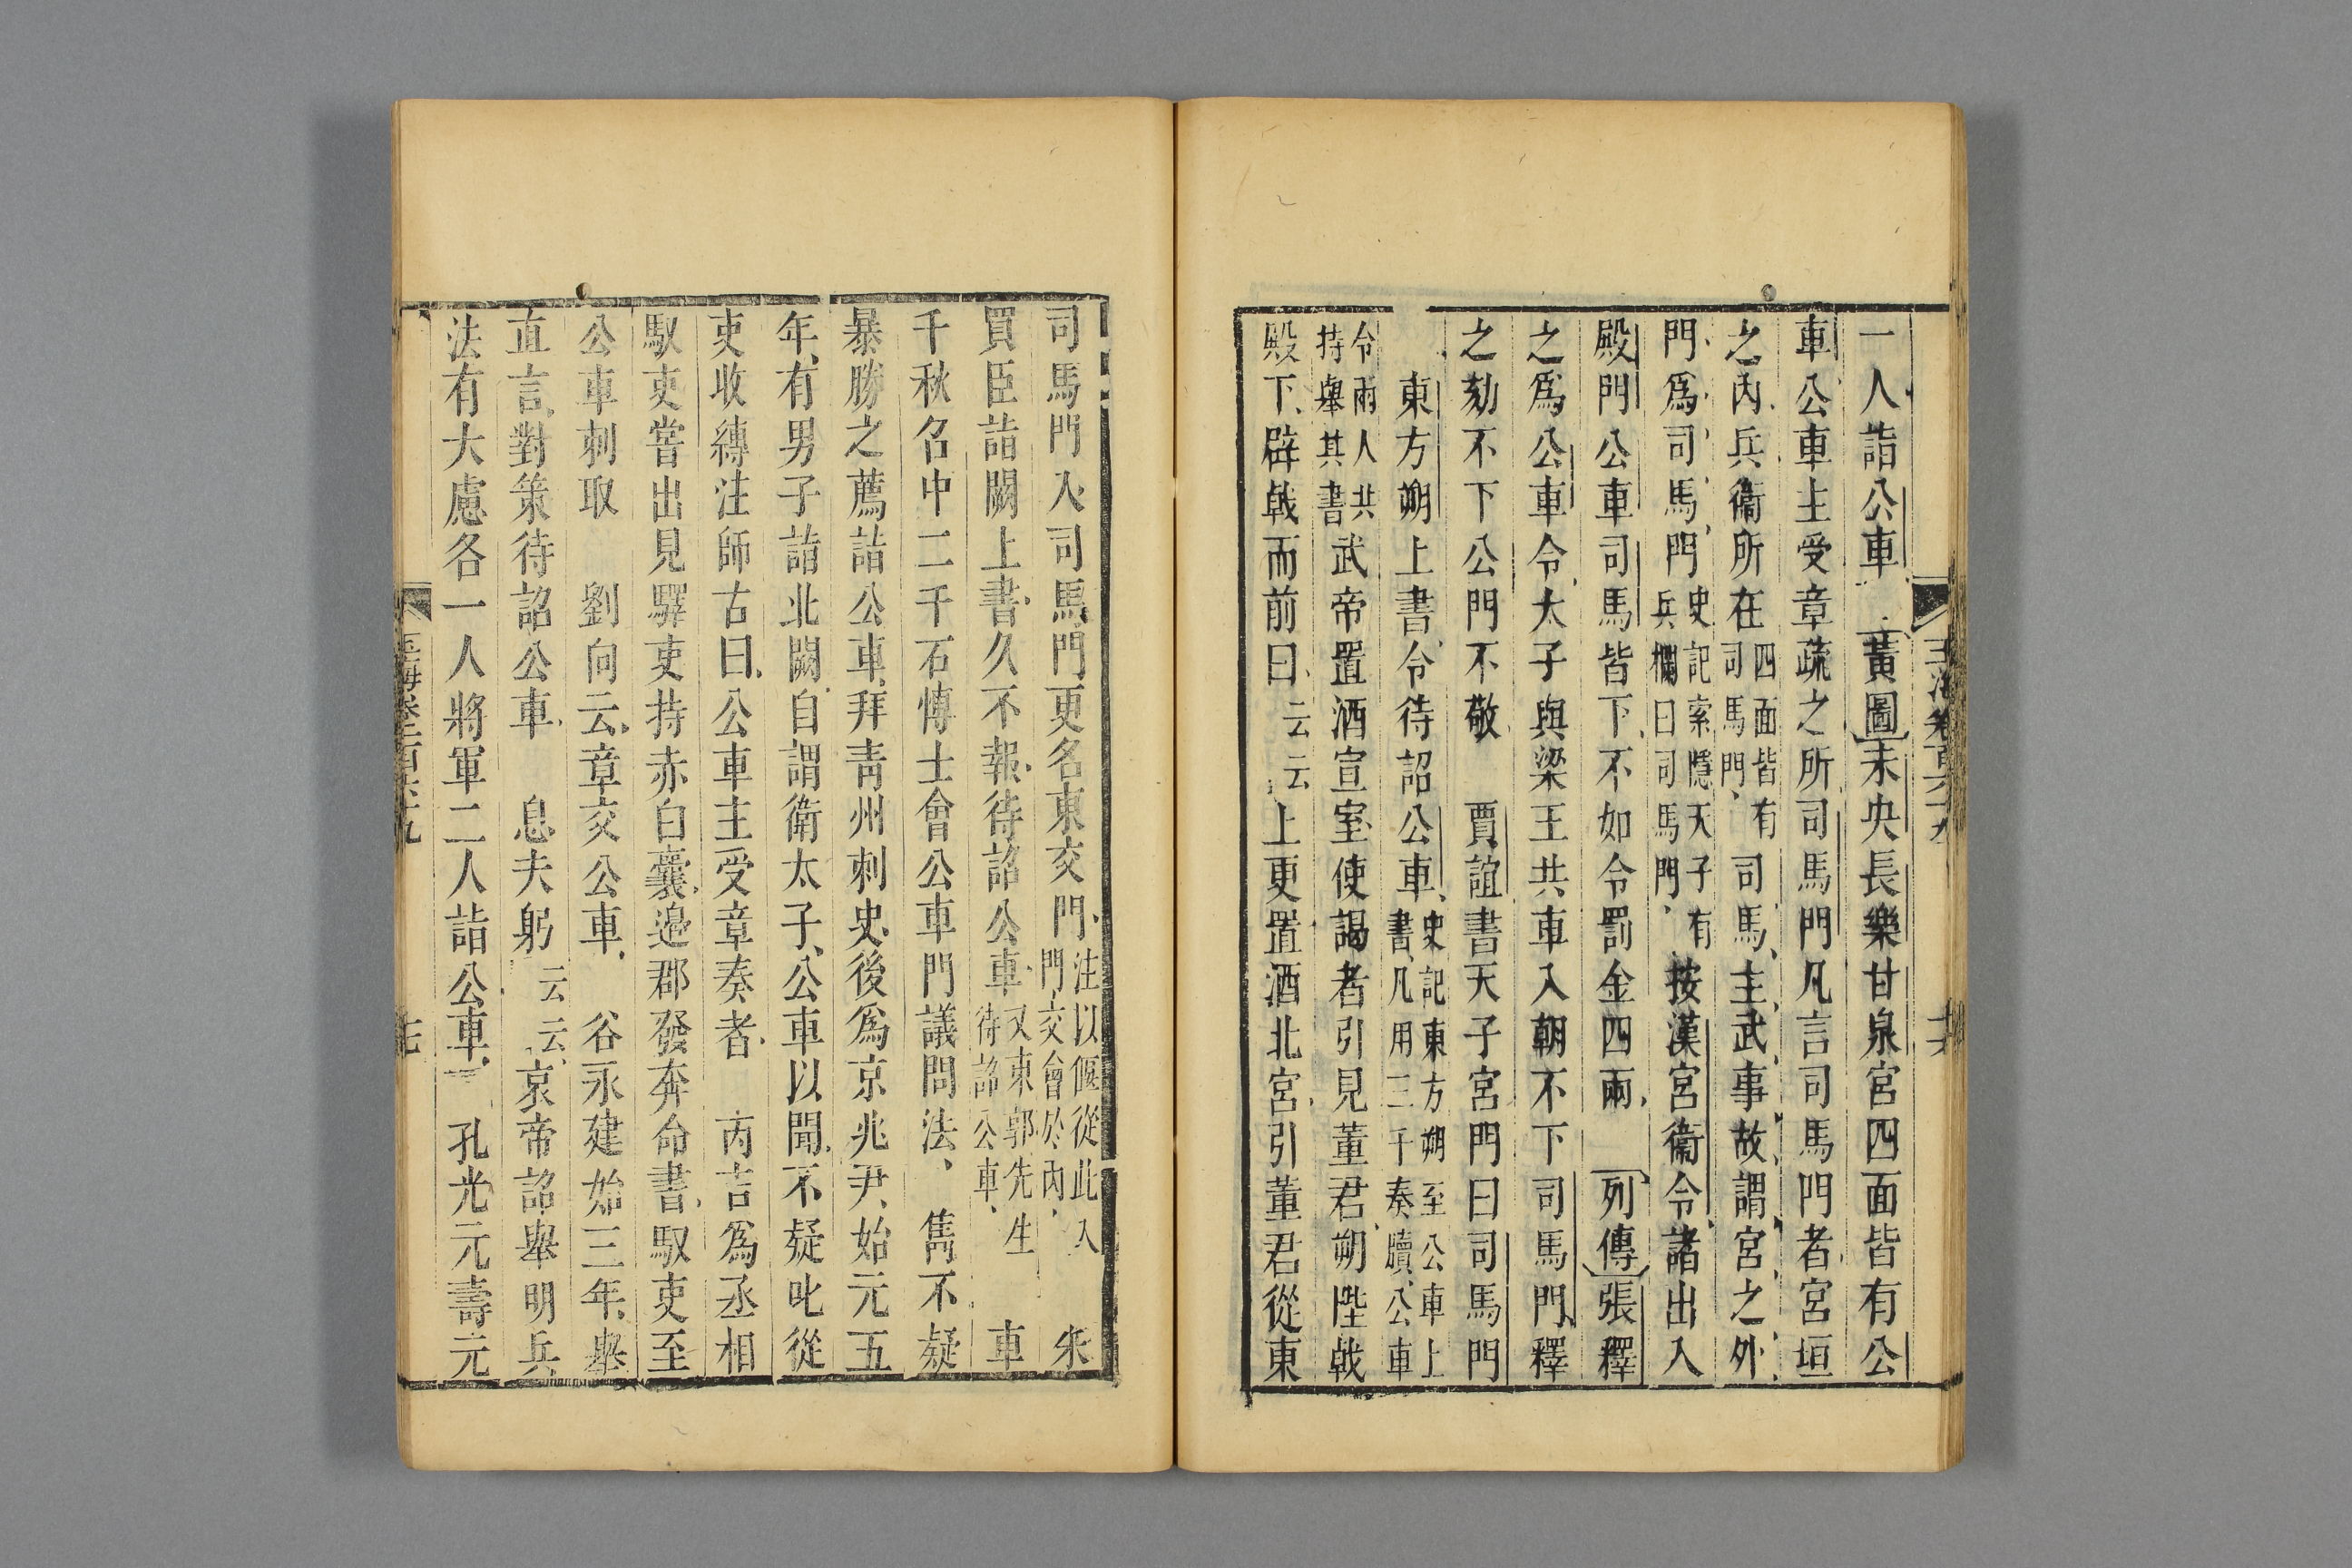 一人詣公車　黃圖未央長樂甘泉宮四面皆有公
車公車主受章疏之所司馬門凡言司馬門者宮垣
之內兵衞所在四面皆有司馬門司馬主武事故謂宮之外
門爲司馬門史記索隱天子有兵欄曰司馬門按漢宮衞令諸出入
殿門公車司馬皆下不如令罰金四兩　列傳張釋
之爲公車令太子與梁王共車入朝不下司馬門釋
之劾不下公門不敬　賈誼書天子宮門曰司馬門
東方朔上書令待詔公車史記東方朔至公車上書凡用三千奏牘公車
令兩人共持舉其書武帝置酒宣室使謁者引見董君朔陛戟
殿下辟戟而前曰云云上更置酒北宮引董君從東
司馬門入司馬門更名東交門注以偃從此入門交會於內　朱
買臣詣闕上書久不報待詔公車又東郭先生待詔公車　車
千秋召中二千石博士會公車門議問法　雋不疑
暴勝之薦詣公車拜靑州刺史後爲京兆尹始元五
年有男子詣北闕自謂衛太子公車以聞不疑叱從
吏收縛注師古曰公車主受章奏者　丙吉爲丞相
馭吏嘗出見驛吏持赤白囊邊郡發奔命書馭吏至
公車刺取　劉向云章交公車　谷永建始三年舉
直言對策待詔公車　息夫躬云云哀帝詔舉明兵
法有大慮各一人將軍二人詣公車　孔光元壽元
玉海卷百六十九
十六
玉海卷一百六十九
七